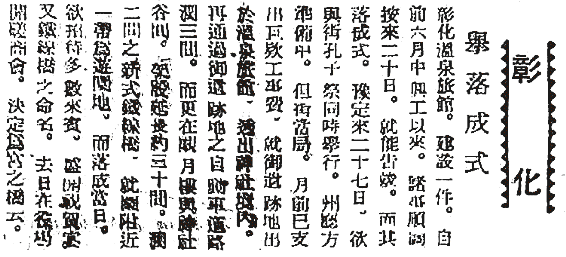 彰化
舉落成式
彰化溫泉旅館。建設一件。自
前六月中興工以來。諸事順調
按來二十日。就能告竣。而其
落成式。豫定來二十七日。欲
與街孔子祭同時舉行。州廳方
準備中。但街當局。月前已支
出工事費。就御遺跡地出
於溫泉旅館。透出神社境內。
再通過御遺跡地之自動車道路
濶三間。而更在觀月樓與神社
谷間。架設延長約三十間。濶
二間之新式鐵線橋。就附近
一帶爲遊園地。而落成當日。
欲招待多數來賓。盛開祝賀宴
又鐵線橋之命名。去日在役場
開磋商會。決定爲宮之橋云。